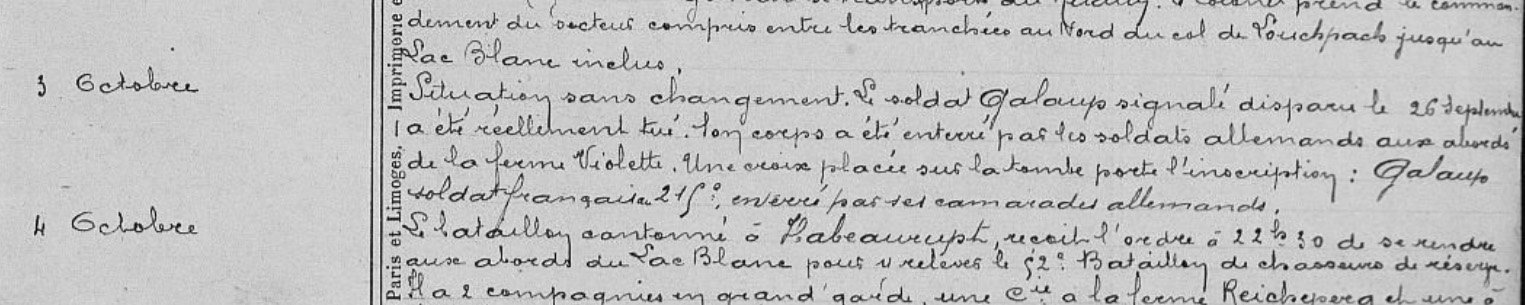 prend le comman-
dement du secteur compris entre les tranchées au Nord du col de Louchpach jusqu'au
Lac Blanc inclus.
3 Octobre
Situation sans changement. Le soldat Galaup signalé disparu le 26 Septembre
a été réellement tué. Son corps a été enterré par les soldats allemands aux abords
de la ferme Violette. Une croix placée sur la tombe porte l'inscription : Galaup
soldat français 215e, enterré par ses camarades allemands.
4 Octobre
Le bataillon cantonné à Habeaurupt, reçoit l'ordre à 22h30 de se rendre
aux abords du Lac Blanc pour y relever le 52e Bataillon de chasseurs de réserve.
Il a 2 compagnies en grand'garde, une Cie à la ferme Reichsberg et une
Paris et Limoges. — Imprimerie